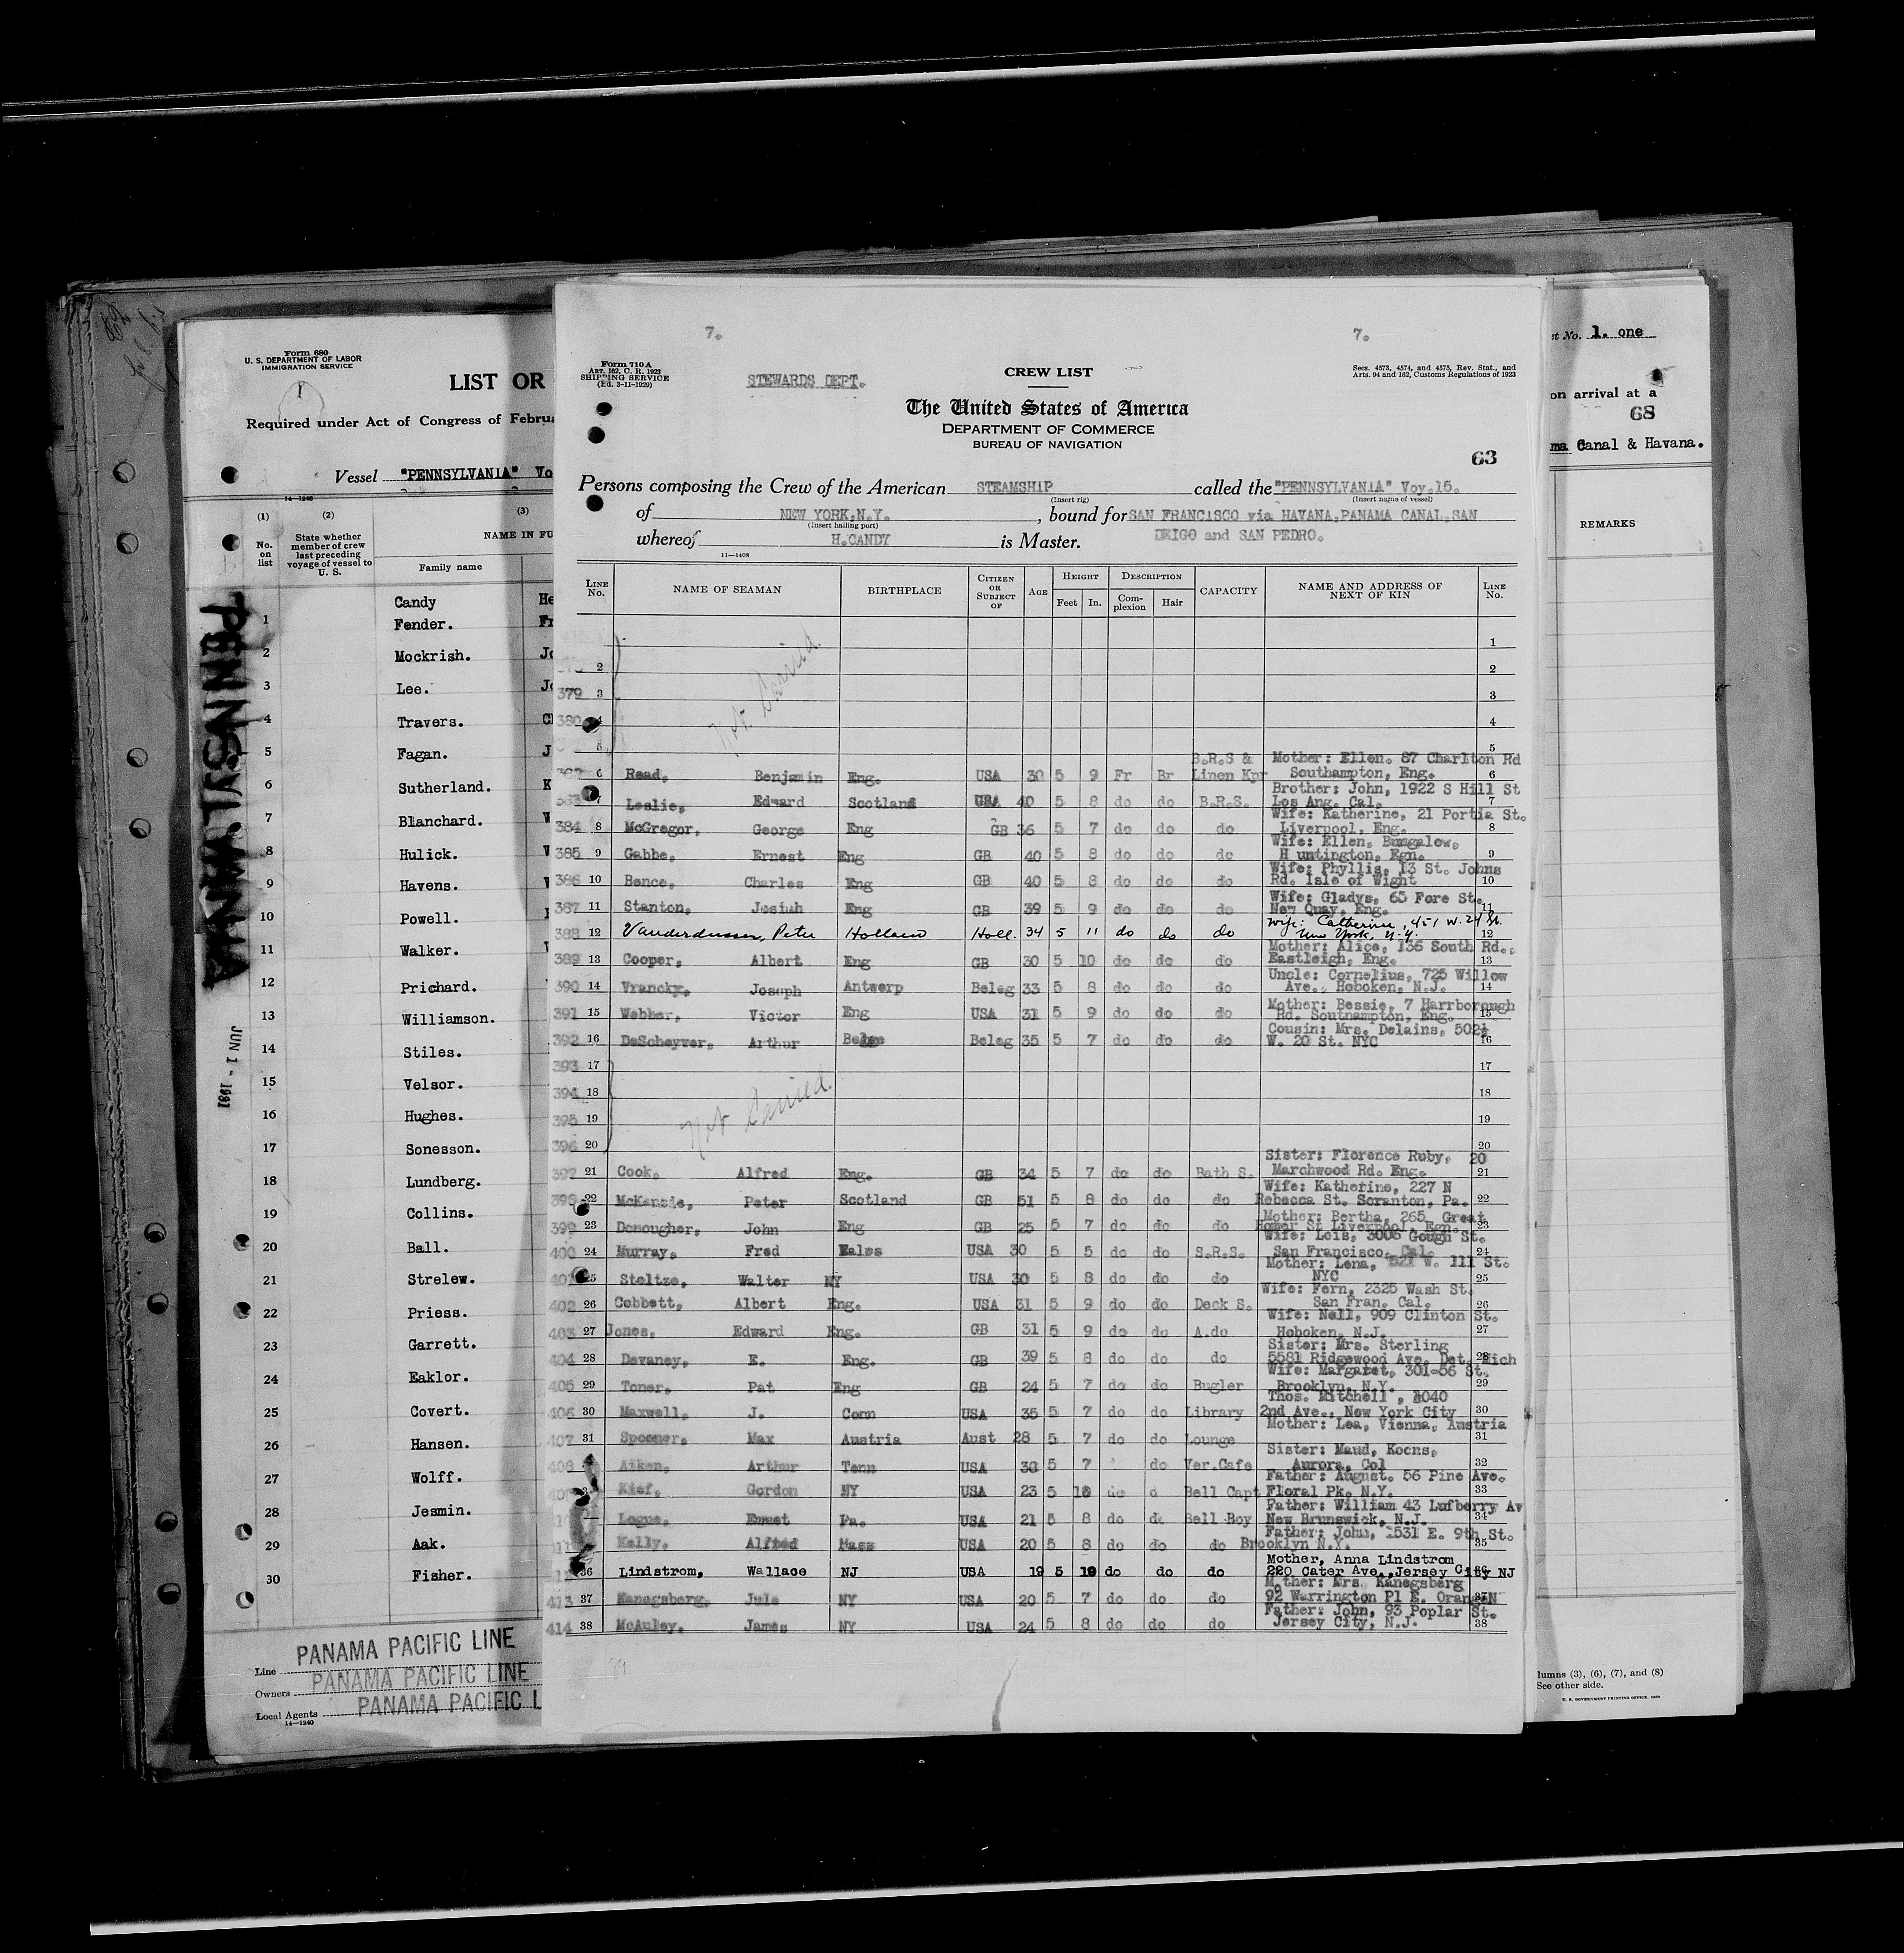 Form 680
U. S. DEPARTMENT OF LABOR
IMMIGRATION SERVICE
LIST OR
Required under Act of Congress of Februa
Vessel "PENNSYLVANIA" Vo
14—1240
(1) (2) (3)
No. on list
State whether member of crew last preceding voyage of vessel to U. S.
NAME IN FU
Family name
Candy He
1 Fender. Fr
2 Mockrish. Jo
3 Lee. Jo
4 Travers. Ch
5 Fagan. J
6 Sutherland. K
7 Blanchard.
8 Hulick.
9 Havens.
10 Powell.
11 Walker.
12 Prichard.
13 Williamson.
14 Stiles.
15 Velsor.
16 Hughes.
17 Sonesson.
18 Lundberg.
19 Collins.
20 Ball.
21 Strelew.
22 Priess.
23 Garrett.
24 Eaklor.
25 Covert.
26 Hansen.
27 Wolff.
28 Jesmin.
29 Aak.
30 Fisher.
PENNSYLVANIA
JUN 1 - 1931
Line PANAMA PACIFIC LINE
Owners PANAMA PACIFIC LINE
Local Agents PANAMA PACIFIC L
14—1240
7. 7.
Form 710 A
Art. 162, C. R. 1923
SHIPPING SERVICE
(Ed. 3-11-1929)
STEWARDS DEPT.
CREW LIST
Secs. 4573, 4574, and 4575, Rev. Stat., and
Arts. 94 and 162, Customs Regulations of 1923
The United States of America
DEPARTMENT OF COMMERCE
BUREAU OF NAVIGATION
63
Persons composing the Crew of the American STEAMSHIP called the "PENNSYLVANIA" Voy.15.
(Insert rig) (Insert name of vessel)
of NEW YORK,N.Y. , bound for SAN FRANCISCO via HAVANA,PANAMA CANAL,SAN
(Insert hailing port)
whereof H.CANDY is Master. DEIGO and SAN PEDRO.
11—1408
LINE No. NAME OF SEAMAN BIRTHPLACE CITIZEN OR SUBJECT OF AGE HEIGHT Feet In. DESCRIPTION Complexion Hair CAPACITY NAME AND ADDRESS OF NEXT OF KIN LINE No.
1
2 2
379 3 3
380 4 4
5 5
Not Carried.
B.R.S & Mother: Ellen. 87 Charlton Rd
6 Read, Benjamin Eng. USA 30 5 9 Fr Br Linen Kpr Southampton, Eng. 6
Brother: John, 1922 S Hill St
383 7 Leslie, Edward Scotland USA 40 5 8 do do B.R.S. Los Ang. Cal. 7
Wife: Katherine, 21 Portia St.
384 8 McGregor, George Eng GB 36 5 7 do do do Liverpool, Eng. 8
Wife: Ellen, Bungalow,
385 9 Gabbe, Ernest Eng GB 40 5 8 do do do H untington, Egn. 9
Wife: Phyllis, 13 St. Johns
386 10 Bence, Charles Eng GB 40 5 8 do do do Rd. Isle of Wight 10
Wife: Gladys, 63 Fore St.
387 11 Stanton, Josiah Eng GB 39 5 9 do do do New Quay, Eng. 11
Wife: Catherine, 451 W. 24 St.
388 12 Vanderdussen, Peter Holland Holl. 34 5 11 do do do New York, N.Y. 12
Mother: Alice, 136 South Rd.,
389 13 Cooper, Albert Eng GB 30 5 10 do do do Eastleigh, Eng. 13
Uncle: Cornelius, 725 Willow
390 14 Vrancky, Joseph Antwerp Beleg 33 5 8 do do do Ave., Hoboken, N.J. 14
Mother: Bessie, 7 Harrborough
391 15 Webber, Victor Eng USA 31 5 9 do do do Rd. Southampton, Eng. 15
Cousin: Mrs. Delains, 502½
392 16 DeScheyver, Arthur Beleg 35 5 7 do do do W. 20 St. NYC 16
393 17 17
394 18 18
395 19 19
396 20 20
Not Carried.
Sister: Florence Ruby, 20
397 21 Cook, Alfred Eng. GB 34 5 7 do do Bath S. Marchwood Rd. Eng. 21
Wife: Katherine, 227 N
398 22 McKenzie, Peter Scotland GB 51 5 8 do do do Rebecca St. Scranton, Pa. 22
Mother: Bertha, 265 Great
399 23 Donougher, John Eng GB 25 5 7 do do do Homer St Liverpool, Egn. 23
Wife: Lois, 3006 Gough St.
400 24 Murray, Fred Wales USA 30 5 5 do do S.R.S. San Francisco, Cal. 24
Mother: Lena, 521 W. 111 St.
401 25 Stoltze, Walter NY USA 30 5 8 do do do NYC 25
Wife: Fern, 2325 Wash St.
402 26 Cobbett, Albert Eng. USA 31 5 9 do do Deck S. San Fran. Cal. 26
Wife: Nell, 909 Clinton St.
403 27 Jones, Edward Eng. GB 31 5 9 do do A.do Hoboken, N.J. 27
Sister: Mrs. Sterling
404 28 Devaney, E. Eng. GB 39 5 8 do do do 5581 Ridgewood Ave. Det. Mich 28
Wife: Margaret, 301-56 St.
405 29 Toner, Pat Eng GB 24 5 7 do do Bugler Brooklyn, N.Y. 29
Thos. Mitchell, 1040
406 30 Maxwell, J. Conn USA 35 5 7 do do Library 2nd Ave., New York City 30
Mother: Lea, Vienna, Austria
407 31 Spooner, Max Austria Aust 28 5 7 do do Lounge 31
Sister: Maud, Koons,
408 Aiken, Arthur Tenn USA 30 5 7 do Ver.Cafe Aurora, Col 32
Father: August. 56 Pine Ave.
Kief, Gordon NY USA 23 5 10 do d Bell Capt Floral Pk. N.Y. 33
Father: William 43 Lufberry Av
Logue, Emmet Pa. USA 21 5 8 do do Bell Boy New Brunswick, N.J. 34
Father: John, 1531 E. 9th St.
Kelly, Alfred Mass USA 20 5 8 do do do Brooklyn N.Y. 35
Mother, Anna Lindstrom
36 Lindstrom, Wallace NJ USA 19 5 10 do do do 220 Cater Ave.,Jersey City NJ 36
Mother: Mrs Kanegsberg
413 37 Kanegsberg, Jule NY USA 20 5 7 do do do 92 Warrington Pl E. Orange N 37
Father: John, 93 Poplar St.
414 38 McAuley, James NY USA 24 5 8 do do do Jersey City, N.J. 38
et No. 1. one
on arrival at a
68
ma Canal & Havana.
REMARKS
lumns (3), (6), (7), and (8)
See other side.
U. S. GOVERNMENT PRINTING OFFICE